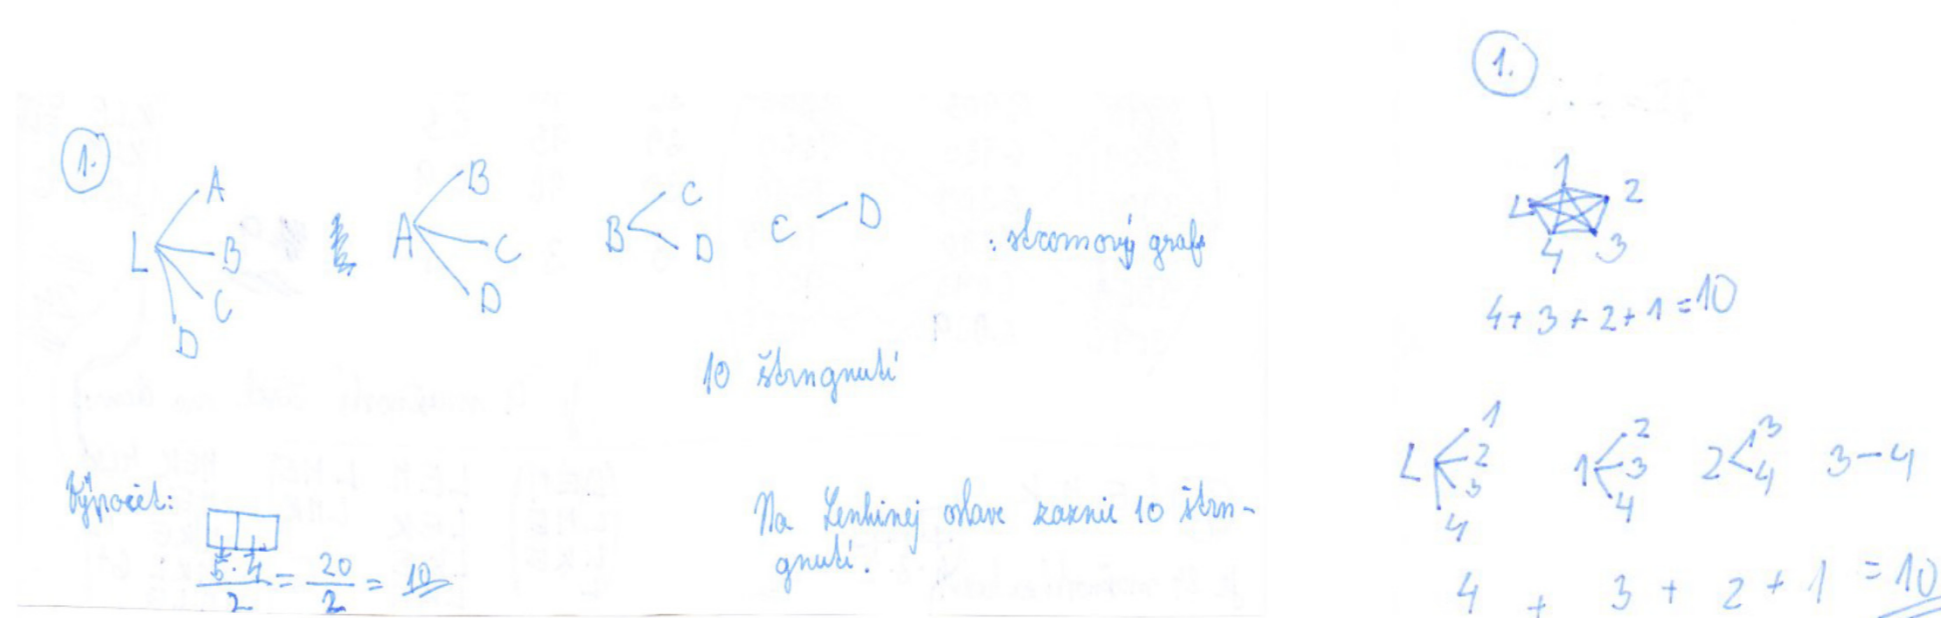 1.
L A B C D
A B C D
B C D
C – D
: stromový graf
10 štrngnutí
Výpočet:
5·4/2 = 20/2 = 10
Na Lenkinej oslave zaznie 10 štrn-
gnutí.
1.
1
L 2
4 3
4+3+2+1=10
L 1 2 3 4
1 2 3 4
2 3 4
3–4
4 + 3 + 2 + 1 = 10